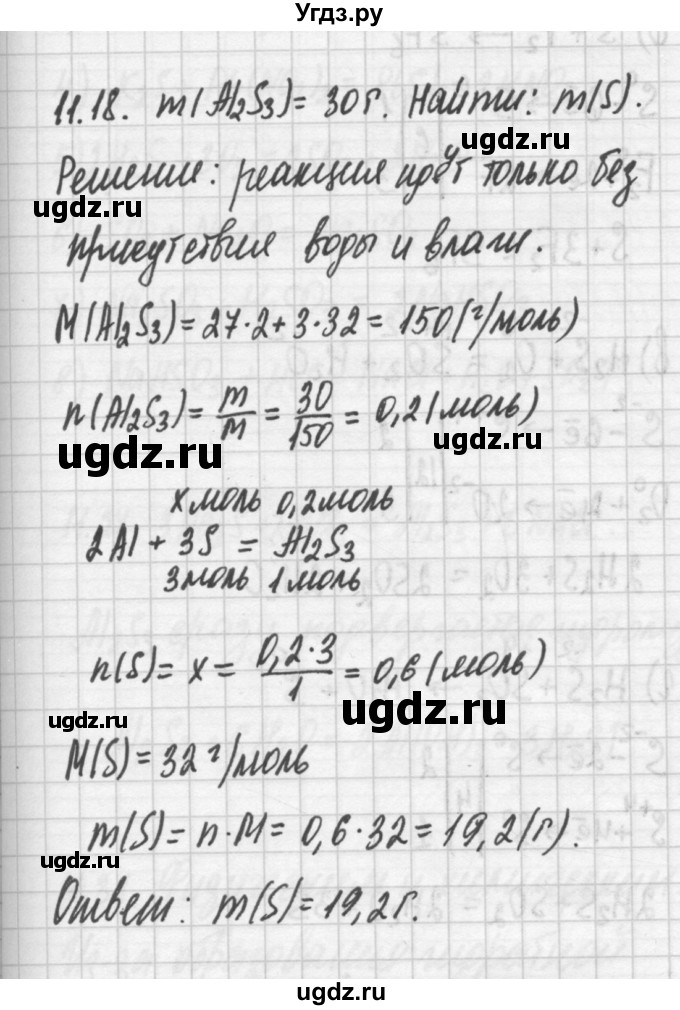 Угдз.ру
11.18. m(Al₂S₃)= 30 г. Найти: m(S).
ugdz.ru
Решение: реакция идёт только без
ugdz.ru
присутствия воды и влаги.
M(Al₂S₃)=27·2+3·32= 150(г/моль)
n(Al₂S₃)= m/M = 30/150 = 0,2(моль)
ugdz.ru
ugdz.ru
x моль 0,2моль
2Al + 3S = Al₂S₃
3моль 1моль
n(S)= x = 0,2·3/1 = 0,6(моль)
ugdz.ru
ugdz.ru
M(S)=32 г/моль
m(S)= n·M= 0,6·32=19,2(г).
ugdz.ru
Ответ: m(S)=19,2г.
ugdz.ru
ugdz.ru